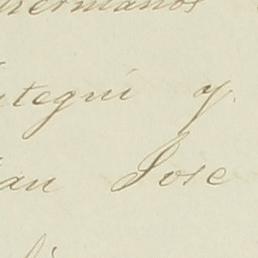 hermanos
tegui y
an Jose